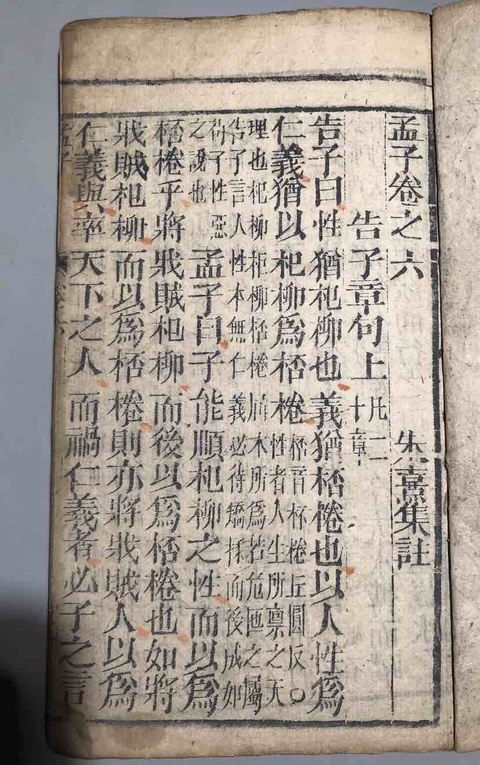 孟子卷之六 朱熹集註
告子章句上 凡二
十章
告子曰性猶杞柳也義猶桮棬也以人性爲
仁義猶以杞柳爲桮棬 桮音杯棬丘圓反○
性者人生所稟之天
理也杞柳柜柳桮棬屈木所爲若危匜之屬
告子言人性本無仁義必待矯揉而後成如
荀子性惡
之說也
孟子曰子能順杞柳之性而以爲
桮棬乎將戕賊杞柳而後以爲桮棬也如將
戕賊杞柳而以爲桮棬則亦將戕賊人以爲
仁義與率天下之人而禍仁義者必子之言
孟子